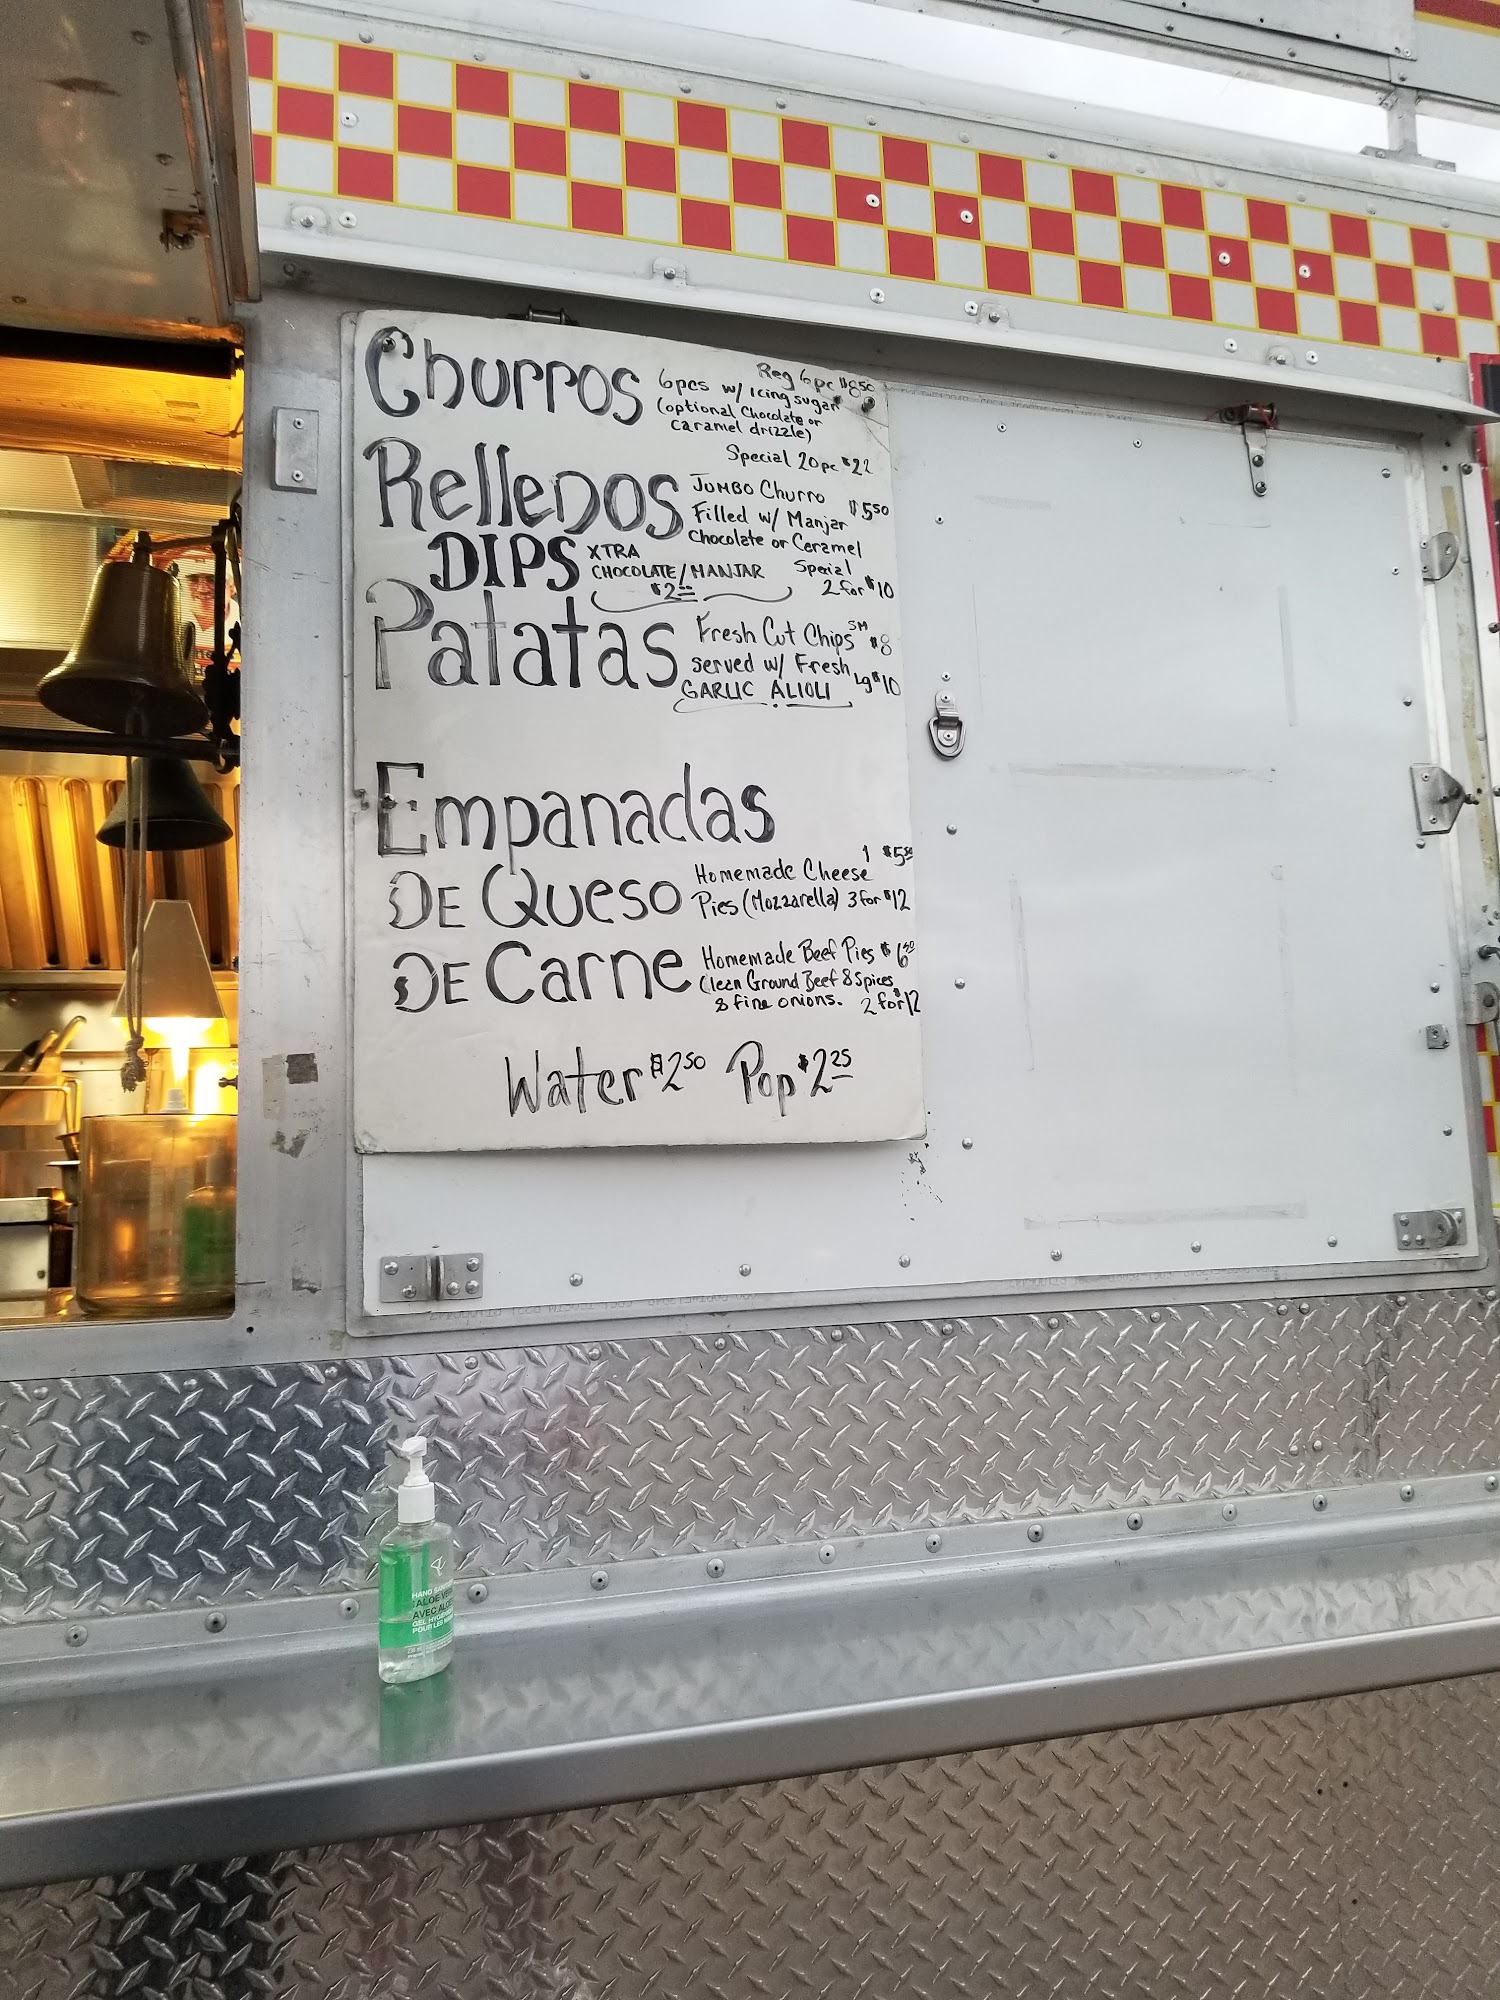 Churros
Reg 6pc $8.50
6pcs w/ icing sugar
(optional Chocolate or
caramel drizzle)
Special 20pc $22
Rellenos
JUMBO Churro $5.50
Filled w/ Manjar
Chocolate or Ceramel
Special
2 for $10
DIPS XTRA
CHOCOLATE/MANJAR
$2.00
Patatas
Fresh Cut Chips SM $8
served w/ Fresh Lg $10
GARLIC ALIOLI
Empanadas
1 $5.50
DE Queso Homemade Cheese
Pies (Mozzarella) 3 for $12
DE Carne Homemade Beef Pies $6.50
Clean Ground Beef & Spices
& fine onions. 2 for $12
Water $2.50 Pop $2.25
HAND
ALOE
AVEC
GEL
POUR LES